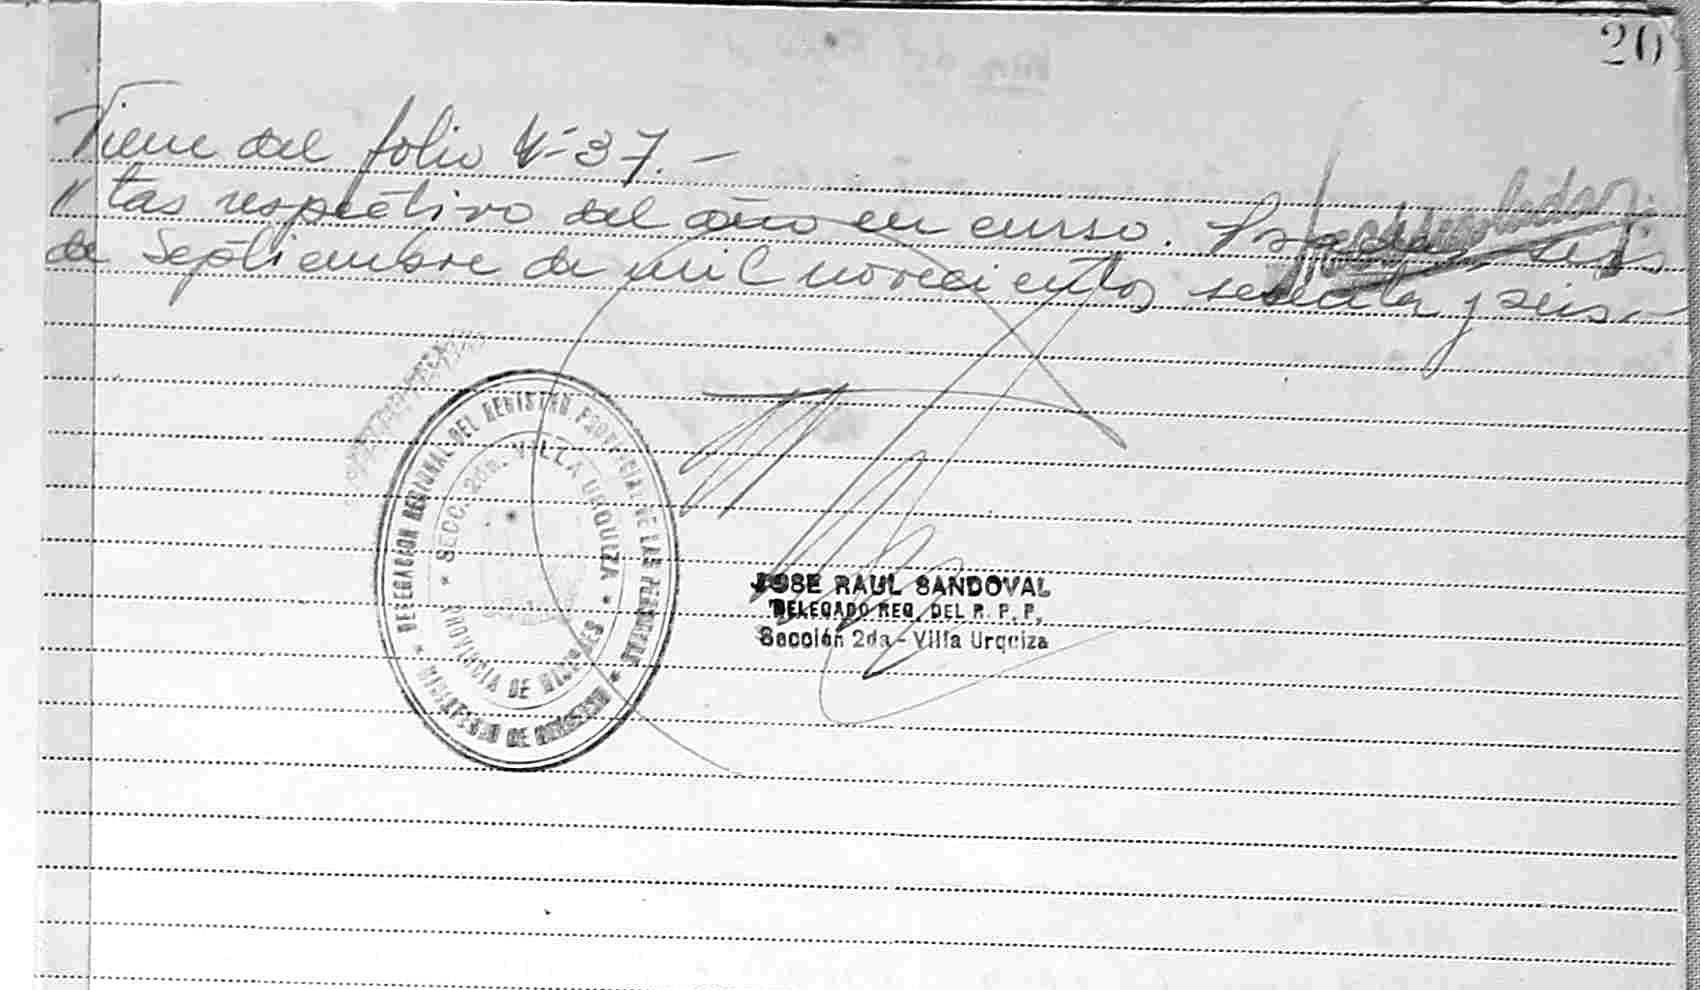 20
Viene del folio Nº 37.-
// tas respectivo del año en curso. Posadas, seis
de Septiembre de mil novecientos setenta y seis.-
DELEGACION REGIONAL DEL REGISTRO PROVINCIAL DE LAS PERSONAS * MINISTERIO DE GOBIERNO *
SECC. 2da. VILLA URQUIZA * PROVINCIA DE MISIONES *
JOSE RAUL SANDOVAL
DELEGADO REG. DEL R. P. P.
Sección 2da - Villa Urquiza